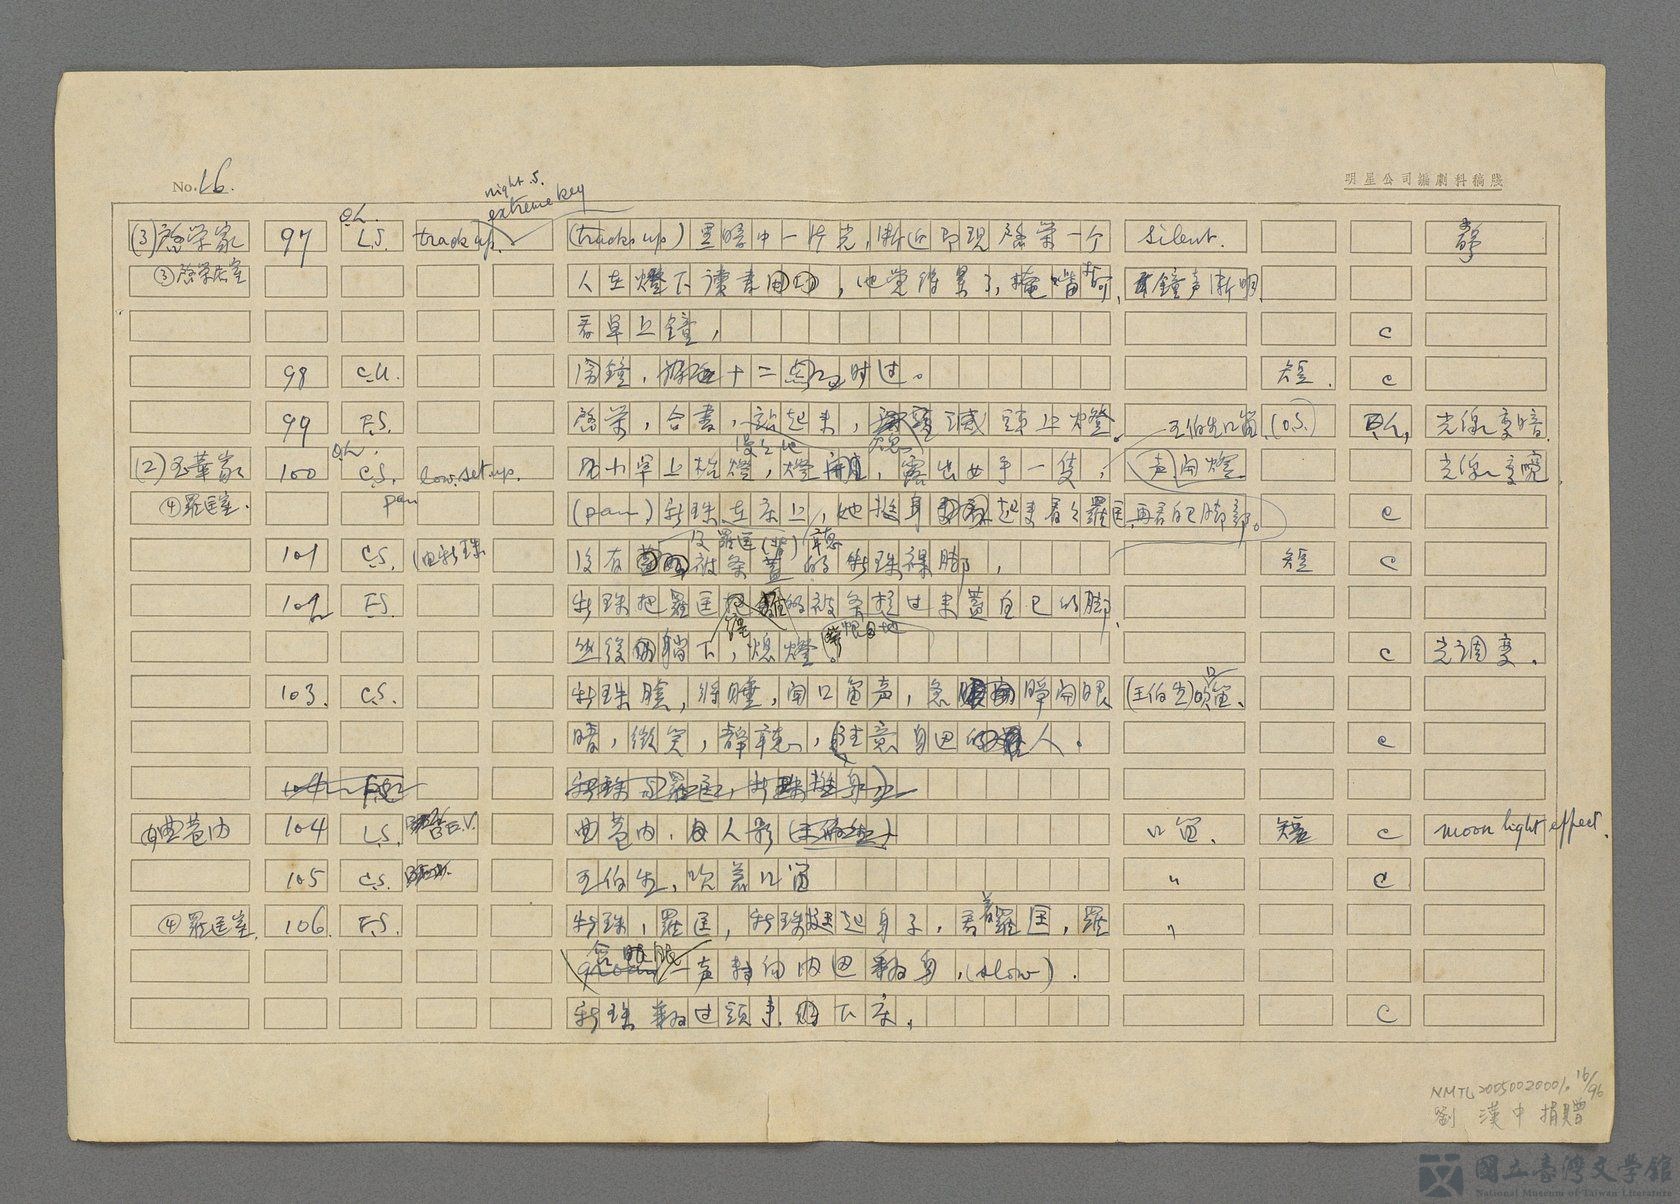 No. 16.
明星公司編劇科稿牋
night.S.
extreme key
O.L.
(3)啓榮家 97 L.S. track up. (track up) 黑暗中一片光,漸近即現啓榮一个 silent. 靜
③啓榮居室 人在燈下讀書用功,他覺得累了,掩嘴 鐘声漸明
看桌上鐘, C
98 C.U. 鐘,十二点 时过。 短. C
99 F.S. 啓榮,合書,站起来, 滅 桌上燈。 王伯生口笛 (O.S.) O.L, 光線変暗.
O.L.
(2)玉華家 100 C.S. low set up. 小桌上枱燈,燈開,露出女手一隻, 声 開燈 光線変亮.
④羅匡室. pan (pan) 新珠在床上,她挺身 起来看々羅匡,再看自己脚部。 C
101 C.S. 没有 被条蓋的新珠裸脚, 短 C
102 F.S. 新珠把羅匡 的被条拉过来蓋自己的脚,
然後躺下,熄燈。 C 光調変.
103. C.S. 新珠臉,将睡,聞口笛声,急 睜開眼 (王伯生)吹口笛.
睛,微笑,靜聽,注意身边的 人. C
(4)曲巷内 104 L.S. 曲巷内. 人影 口笛. 短 C moon light effect.
105 C.S. 王伯生,吹着口笛 〃 C
④羅匡室. 106. F.S. 新珠,羅匡,新珠挺起身子,看着羅匡,羅 〃
一声 向内边翻身,(slow).
新珠翻过頭来 下床, C
NMTL20050020001. 16/96
劉漢中捐贈
國立臺灣文學館
National Museum of Taiwan Literature